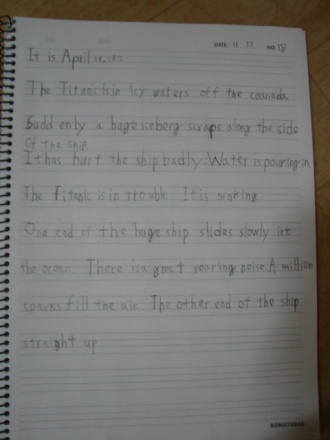 DATE 11 17 NO 18
It is April 14, 1912
The Titanic is in icy waters off the coanada.
Sudd enly a huge iceberg scraps along the side
of the ship
It has hurt the ship badly. Water is pouring in.
The Titanic is in trouble. It is sinking
One end of the huge ship slides slowly into
the ocean. There is a great roaring noise. A million
sparks fill the air. The other end of the ship
straight up